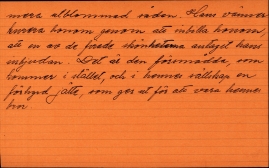 mera utblommad sådan. Hans vänner
kurera honom genom att inbilla honom,
att en av de förade skönheterna antaget hans
inbjudan. Det är den försmådda, som
kommer i stället, och i hennes sällskap en
förklädd jätte, som ges ut för att vara hennes
bror.